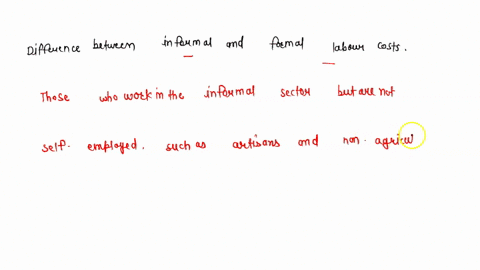 Difference between informal and formal labour costs.
Those who work in the informal sector but are not
self. employed. such as artisans and non. agricu